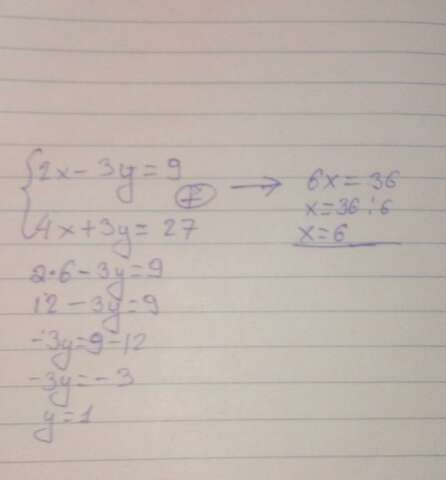 2x - 3y = 9
+ → 6x = 36
4x + 3y = 27
x = 36 : 6
x = 6
2·6 - 3y = 9
12 - 3y = 9
-3y = 9 - 12
-3y = -3
y = 1